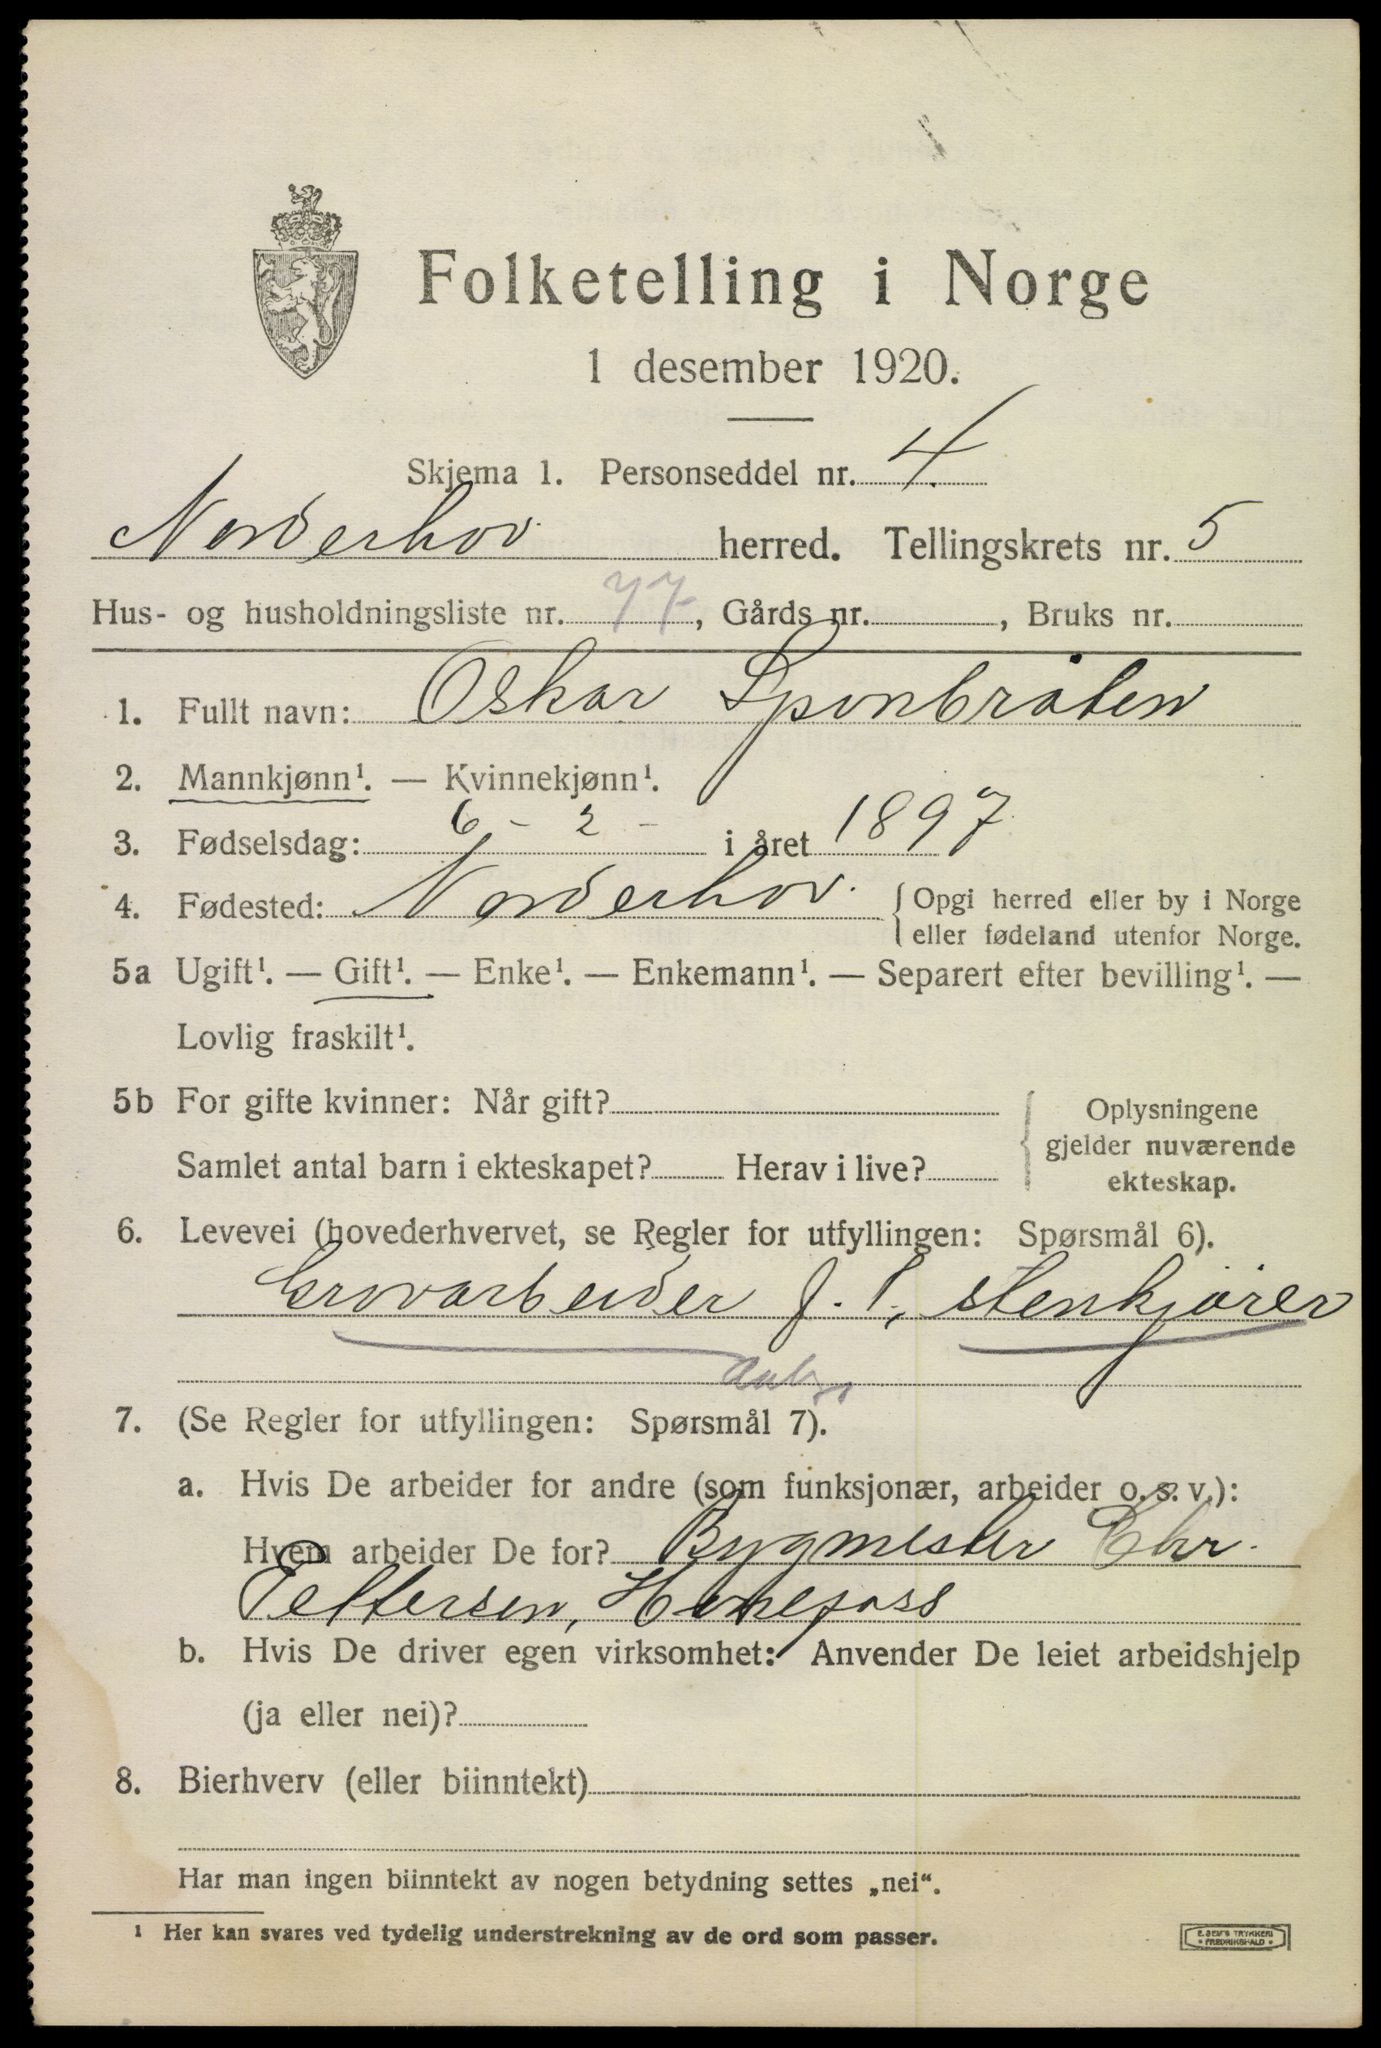 Folketelling i Norge
1 desember 1920.
Skjema 1. Personseddel nr. 4.
Norderhov herred. Tellingskrets nr. 5
Hus- og husholdningsliste nr. 77, Gårds nr. , Bruks nr.
1. Fullt navn: Oskar Sponbråten
2. Mannkjønn¹. — Kvinnekjønn¹.
3. Fødselsdag: 6 - 2 - i året 1897
4. Fødested: Norderhov. { Opgi herred eller by i Norge
eller fødeland utenfor Norge.
5a Ugift¹. — Gift¹. — Enke¹. — Enkemann¹. — Separert efter bevilling¹. —
Lovlig fraskilt¹.
5b For gifte kvinner: Når gift?
Samlet antal barn i ekteskapet? Herav i live?
Oplysningene
gjelder nuværende
ekteskap.
6. Levevei (hovederhvervet, se Regler for utfyllingen: Spørsmål 6).
Grovarbeider f. t, stenkjører
7. (Se Regler for utfyllingen: Spørsmål 7).
a. Hvis De arbeider for andre (som funksjonær, arbeider o. s. v.):
Hvem arbeider De for? Bygmester Chr.
Pettersen, Hønefoss
b. Hvis De driver egen virksomhet: Anvender De leiet arbeidshjelp
(ja eller nei)?
8. Bierhverv (eller biinntekt)
Har man ingen biinntekt av nogen betydning settes „nei“.
¹ Her kan svares ved tydelig understrekning av de ord som passer.
E. SEM'S TRYKKERI
• FREDRIKSHALD •